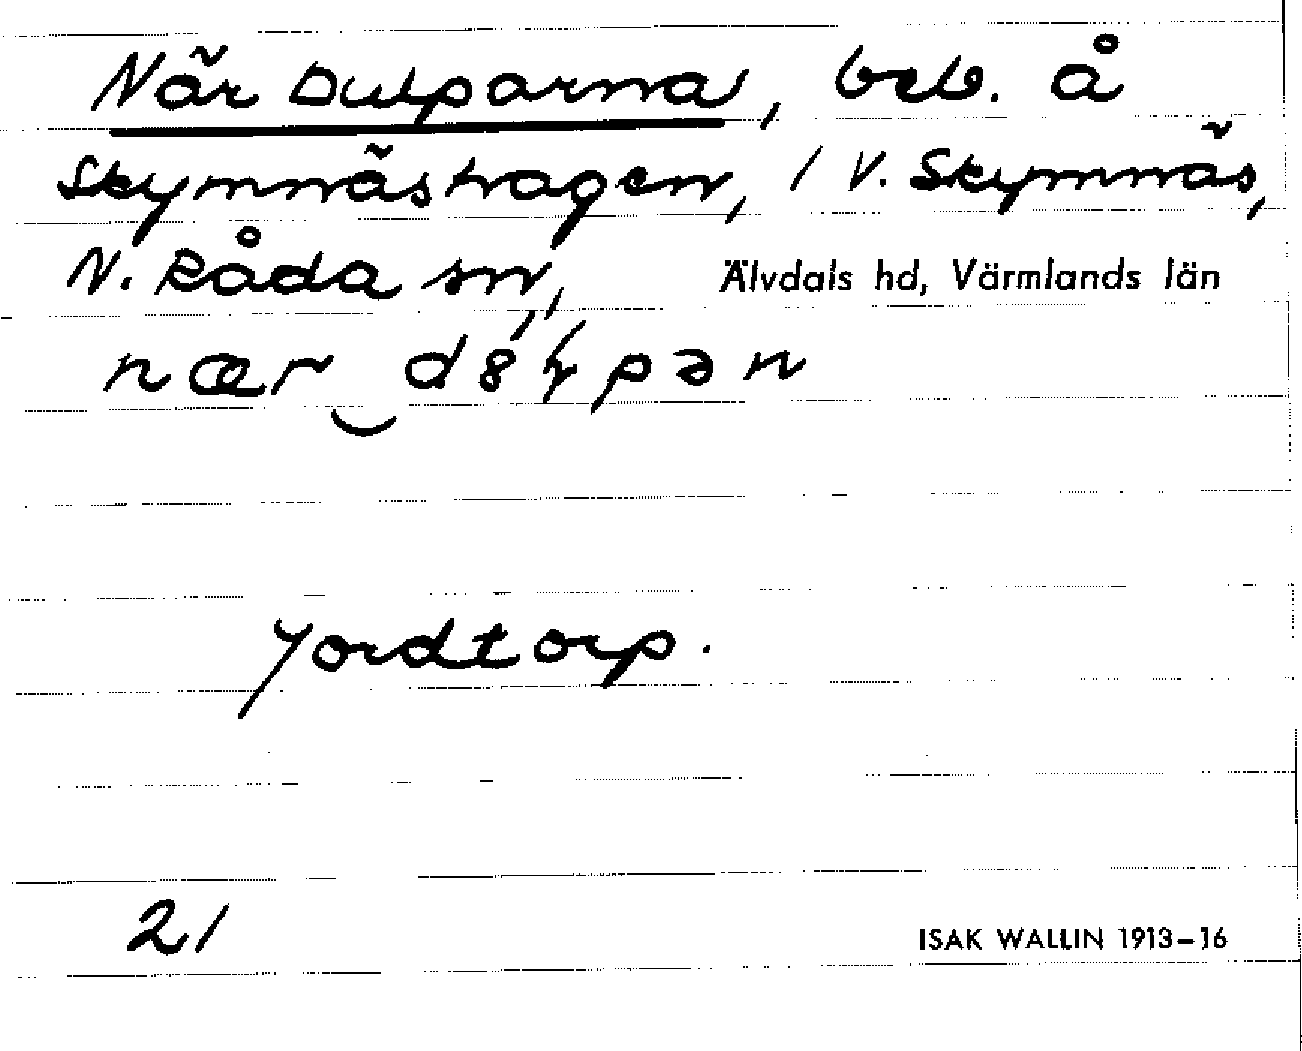 När Dulparna, beb. å
Skymnäshagen, 1 V. Skymnäs,
N. Råda sn, Älvdals hd, Värmlands län
nær
Jordtorp.
21
ISAK WALLIN 1913–16